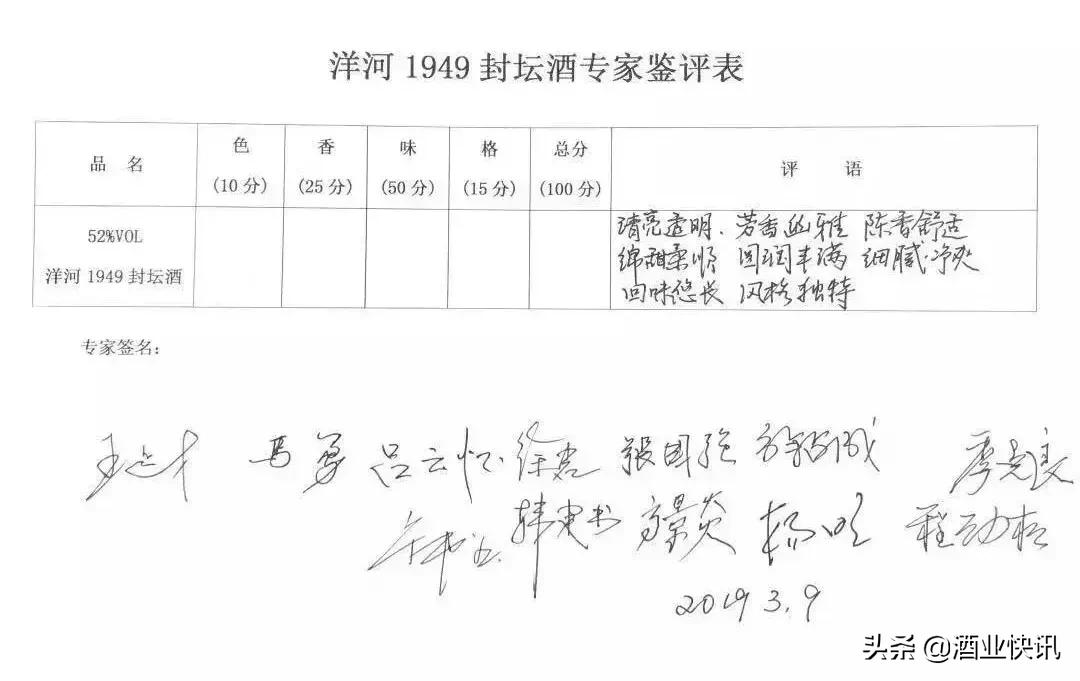 洋河1949封坛酒专家鉴评表
品 名 色 (10分) 香 (25分) 味 (50分) 格 (15分) 总分 (100分) 评 语
52%VOL
洋河1949封坛酒
清亮透明、芳香幽雅 陈香舒适
绵甜柔顺 圆润丰满 细腻净爽
回味悠长 风格独特
专家签名：
王延才 马勇 吕云怀 徐岩 张国强
韩建书 高景炎 杨明 程劲松
2019 3.9
头条@酒业快讯